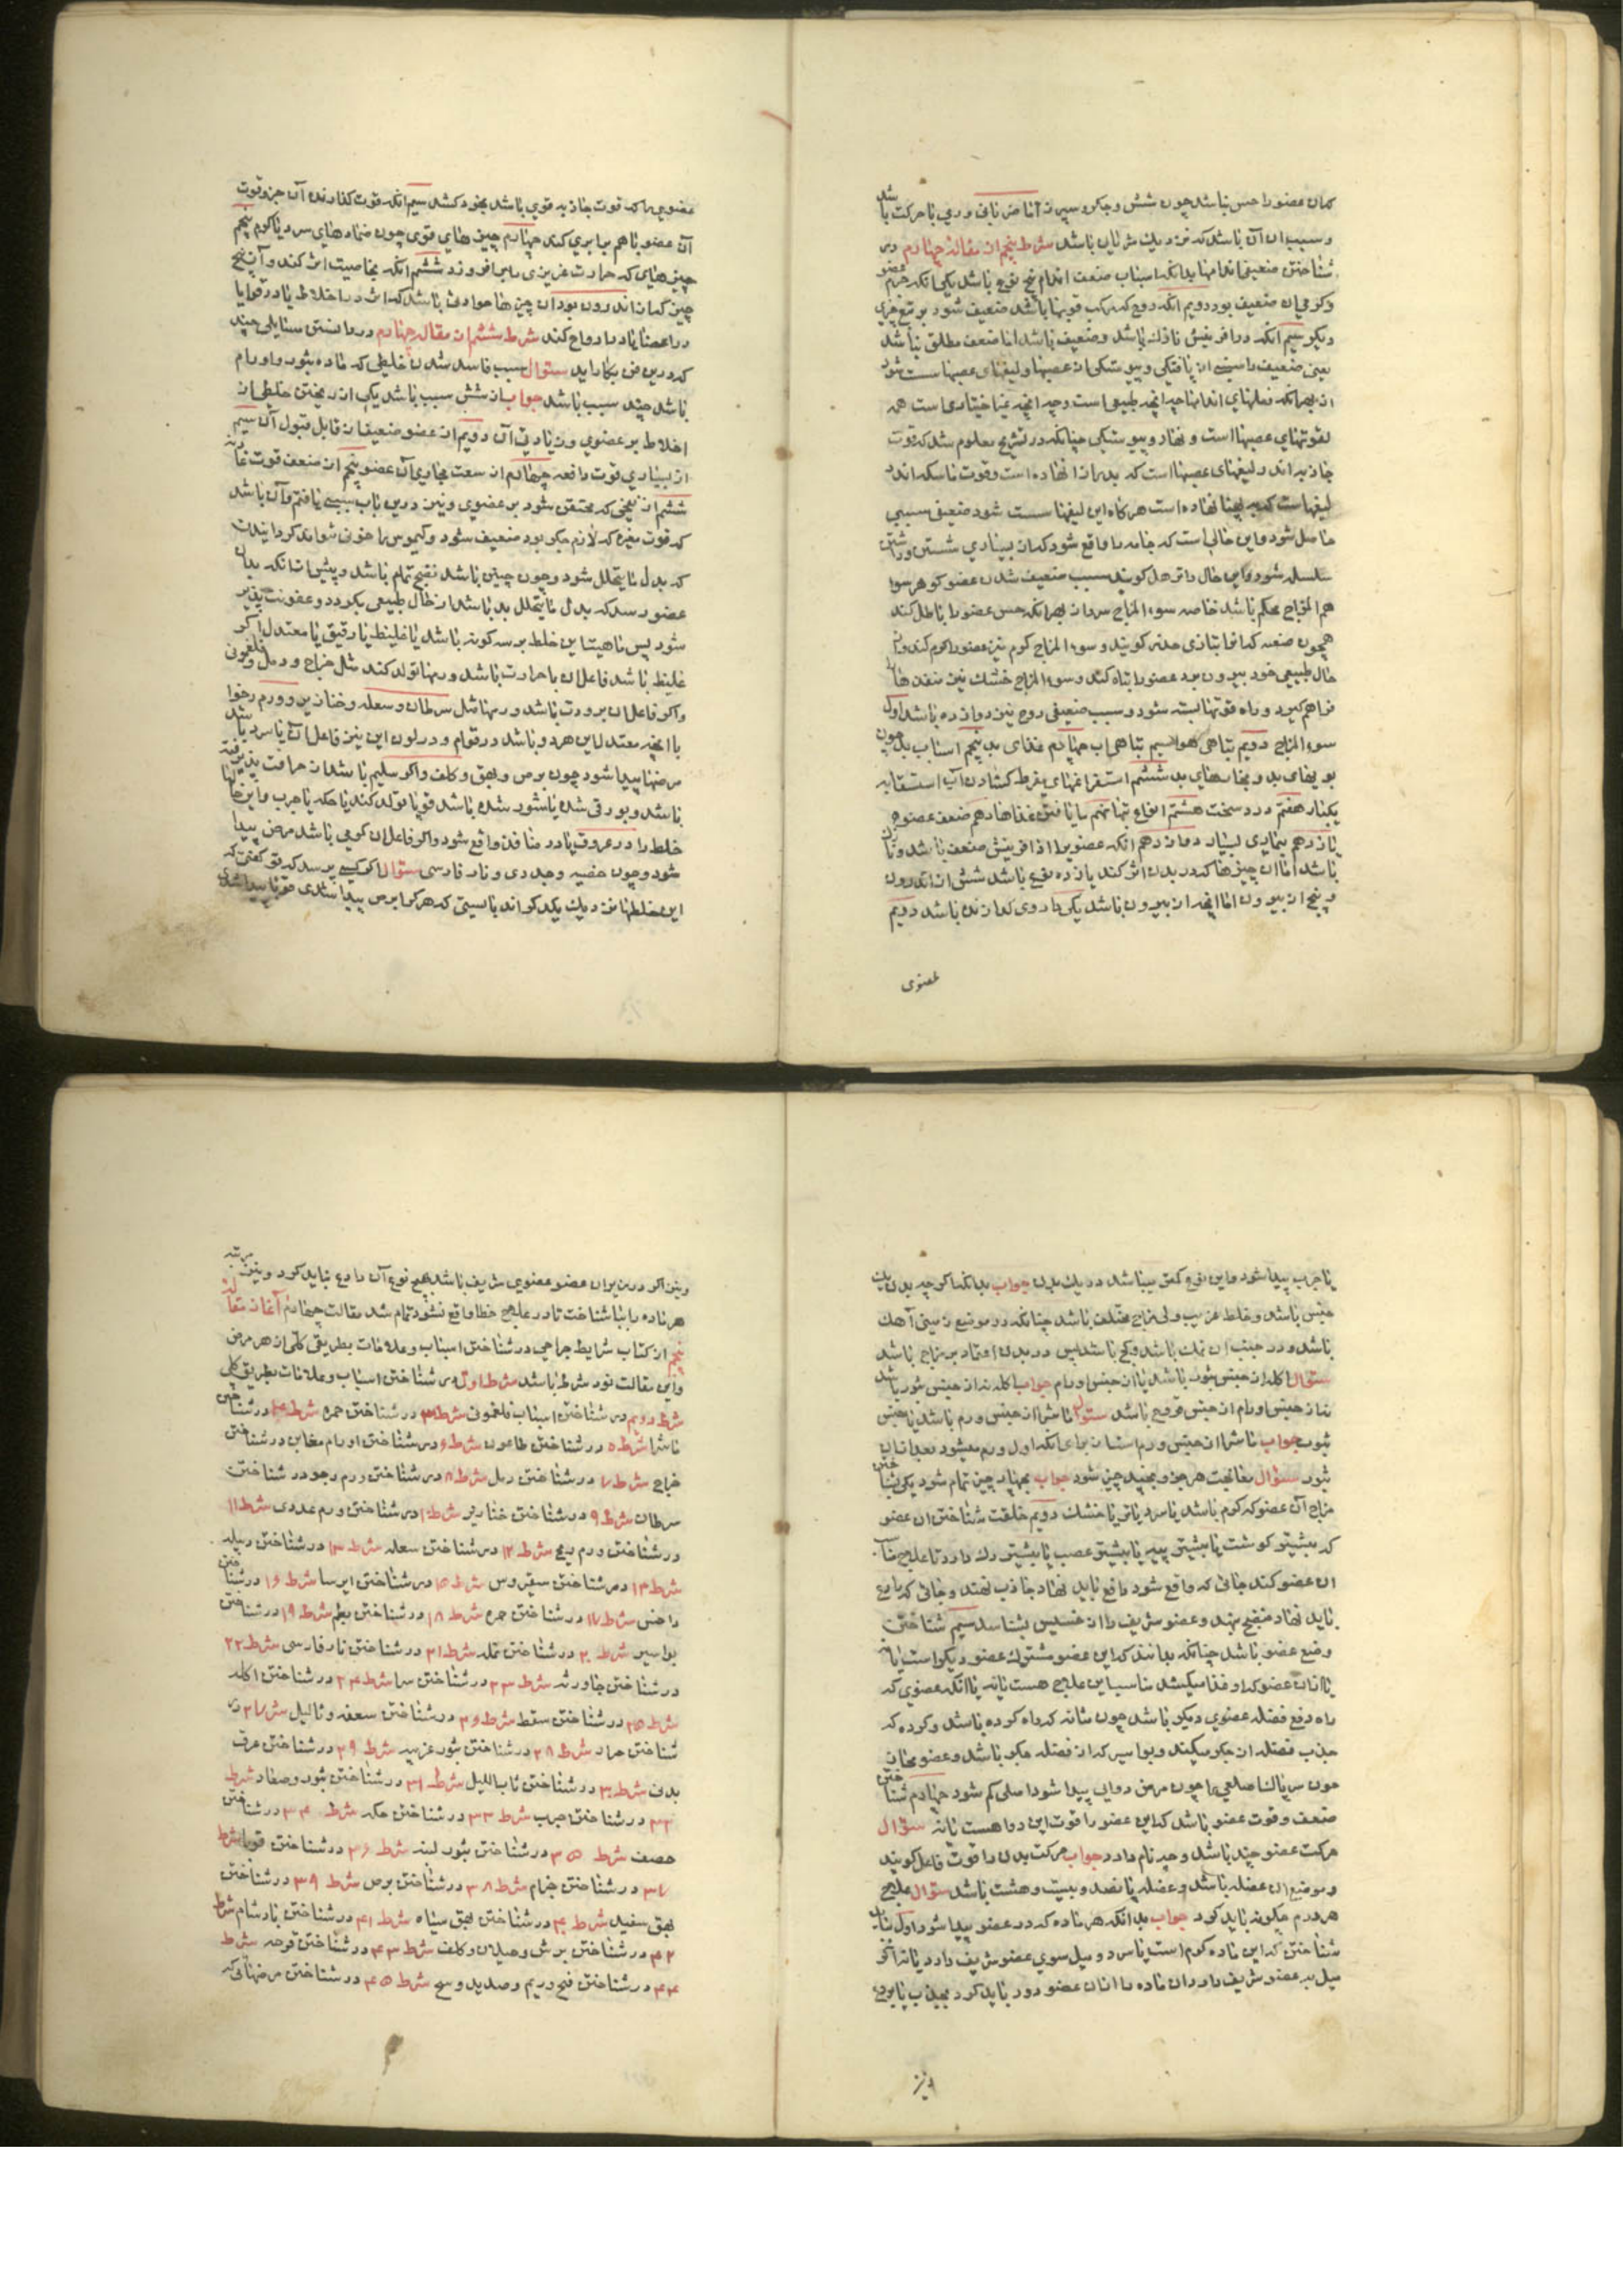 کمان عضو را حس نباشد چون شش و جگر و سپرز اما ضربانی و ربی با حرکت باشد
و سبب آن آن باشد که نزدیک شریان باشد شرط پنجم از مقاله چهارم در
شناختن ضعیفی اندامها بدانکه اسباب ضعف اندام پنج نوع باشد یکی انکه جرم عضو
وکوهر ان ضعیف بود دویم انکه روح که مرکب قوتها باشد ضعیف شود بر نوع
دیکر سیم انکه در افرینش باشد و ضعیف باشد اما ضعف مطلق نباشد
یعنی ضعیف
از بهر انکه فعلهای اندامها چه انچه طبیعی است و چه انچه غیر اختیاری است همه
لقوتهای عصبها است و نهاد و پیوستگی چنانکه در تشریح معلوم شد که قوت
جاذبه اندر لیفهای عصبها است که بدرازا نهاده است و قوت ماسکه اندر
لیفها است که به پهنا نهاده است هر کاه این لیفها سست شود ضعیفی سببی
حاصل شود و این حالی است که جامه را واقع شود که از بسیاری شستن و داشتن
سلسله شود و این حال را ترهل کویند سبب ضعیف شدن عضو کوهر سوا
هم المزاج محکم باشد خاصه سوء المزاج سرد از بهر انکه حس عضو را باطل کند
همچون که انرا بتازی خدر کویند و سوء المزاج کرم نیز عضو را کرم کند و از
حال طبیعی خود بیرون برد عضو را تباه کند و سوء المزاج خشک نیز منفذها را
فراهم کیرد و راه قوتها بسته شود و سبب ضعیفی روح نیز دوازده باشد اول
سوء المزاج دویم تباهی هوا سیم تباهی اب چهارم غذای بد پنجم اسباب بد چون
بویهای بد و بخارهای بد ششم استفراغهای مفرط کشادن آب استسقا به
یکبار هفتم درد سخت هشتم انواع تبها نهم نا یافتن غذاها دهم ضعف عضو
یازدهم بیماری بسیار دوازدهم انکه عضو را از افرینش ضعف باشد و زیان
باشد اما ان چیزها که در بدن اثر کند یازده نوع باشد شش از اندرون
و پنج از بیرون اما انچه از بیرون باشد یکی داروی کدازنده باشد دویم
عضوی
عضوی را که قوت جاذبه قوی باشد بخود کشد سیم انکه قوت کذارنده آن جزو قوت
آن عضو با هم برابری کند چهارم چیزهای قوی چون ضمادهای سرد یا کرم پنجم
چیزهای که حرارت غریزی را بر افروزد ششم انکه بخاصیت اثر کند و آن پنج
چیز که از اندرون بود آن چیزها حوادثی باشد که اثر در اخلاط یا در قوا یا
در اعضا یا در ارواح کند شرط ششم از مقاله چهارم در دانستن مسایلی چند
که درین فن بکار اید سئوال سبب فاسد شدن خلطی که ماده بثور و اورام
باشد چند سبب باشد جواب از شش سبب باشد یکی از ریختن خلطی از
اخلاط بر عضوی و زیادتی آن دویم از عضو ضعیف از قابل قبول آن سیم
از بسیاری قوت دافعه چهارم از سعت مجاری آن عضو پنجم از ضعف قوت غاذیه
ششم از بیخی که محتقن شود بر عضوی و نیز درین باب سببی یافتم و آن باشد
که قوت مغیره که لازم جکر بود ضعیف شود و کیموس را خون نتواند کردانیدن
که بدل ما یتحلل شود و چون چنین باشد نضج تمام باشد و پیش ازانکه بدان
عضو رسد که بدل ما یتحلل بد باشد از حال طبیعی بکردد و عفونت پذیر
شود پس ماهیت این خلط بر سه کونه باشد یا غلیظ یا رقیق یا معتدل اکر
غلیظ باشد فاعل ان با حرارت باشد ورمها تولد کند مثل خراج و دمل و فلغمونی
و اکر فاعل ان برودت باشد ورمها مثل سرطان و سعله و خنازیر و ورم رخوا
یا انچه معتدل این هر دو باشد در قوام و در لون این نیز فاعل ان یا سرد باشد
مرضها پیدا شود چون برص و بهق و کلف و اکر سلیم باشد از حرافت پذیرفته
باشد و بورقی شده یا شور شده باشد قوبا تولد کند یا حکه یا جرب و این حالها
خلط را در عروق یا در منافذ واقع شود و اکر فاعل ان کرمی باشد مرض پیدا
شود چون حصبه و جدری و نار فارسی سئوال اکر کسی پرسد که تو کفتی که
این خلطها نزدیک یکدیکر اند بایستی که هر کرا برص پیدا شدی قوبا پیدا شدی
یا جرب پیدا شود و این نوع کمتر میباشد در یک بدن جواب بدانکه اکر چه بدن یک
جنس باشد و خلط غریب ولی مزاج مختلف باشد چنانکه در موضع زمینی آهک
باشد و در جنب ان نمک باشد و کچ باشد پس در بدن اعتماد بر مزاج باشد
سئوال اکله از جنس بثور باشد یا از جنس اورام جواب اکله نه از جنس بثور باشد
نه از جنس اورام از جنس قروح باشد سئوال ماشرا از جنس ورم باشد یا جنس
بثور جواب ماشرا از جنس ورم است از برای انکه اول ورم میشود بعد ازان
بثور سئوال معالجت هر مرض بچند چیز شود جواب بچهار چیز تمام شود یکی شناختن
مزاج آن عضو که کرم باشد یا سرد یا تر یا خشک دویم خلقت شناختن ان عضو
که بیشتر کوشت یا بیشتر پیه یا بیشتر عصب یا بیشتر رک دارد تا علاج مناسب
ان عضو کند جائی که واقع شود رادع باید نهاد جاذب نهند و جائی که رادع
باید نهاد منضج نهند و عضو شریف را از خسیس بشناسد سیم شناختن
وضع عضو باشد چنانکه بداند که این عضو مشترک عضو دیکر است یا نه
یا ازان عضو که او غذا میکشد مناسب این علاج هست یا نه یا انکه عضوی که
راه دفع فضله عضوی دیکر باشد چون مثانه که راه کرده باشد و کرده که
جذب فضله از جکر میکند و بواسیر که از فضله جکر باشد و عضو
چون مرض دوایی پیدا شود اصلی کم شود چهارم شناختن
ضعف و قوت عضو باشد که این عضو را قوت این دوا هست یا نه سئوال
حرکت عضو چند باشد و چه نام دارد جواب حرکت بدن را قوت فاعل کویند
و موضع ان عضله باشد و عضله پانصد و بیست و هشت باشد سئوال علاج
هر ورم چکونه باید کرد جواب بدانکه هر ماده که در عضو پیدا شود اول باید
شناختن که این ماده کرم است یا سرد و میل سوی عضو شریف دارد یا نه اکر
میل به عضو شریف دارد ان ماده را ازان عضو دور باید کرد بجذب یا بردع
و نیز
و نیز اکر ورم بران عضو عضوی شریف باشد بهیچ نوع آن رادع نباید کرد و نیز مرتبه
هر ماده را بباید شناخت تا در علاج خطا واقع نشود تمام شد مقالت چهارم آغاز مقاله
پنجم از کتاب شرایط جراحی در شناختن اسباب و علامات بطریق کلی از هر مرض
و این مقالت نود شرط باشد شرط اول در شناختن اسباب و علامات بطریق کلی
شرط دویم در شناختن اسباب فلغمونی شرط ۳ در شناختن حمره شرط ۴ در شناختن
ماشرا شرط ۵ در شناختن طاعون شرط ۶ در شناختن اورام مغابن در شناختن
خراج شرط ۷ در شناختن دمل شرط ۸ در شناختن ورم رخو در شناختن
سرطان شرط ۹ در شناختن خنازیر شرط ۱۰ در شناختن ورم غددی شرط ۱۱
در شناختن ورم ریحی شرط ۱۲ در شناختن سعله شرط ۱۳ در شناختن دبیله
شرط ۱۴ در شناختن سقیروس شرط ۱۵ در شناختن ابرسا شرط ۱۶ در شناختن
داخس شرط ۱۷ در شناختن جمره شرط ۱۸ در شناختن بطم شرط ۱۹ در شناختن
بواسیر شرط ۲۰ در شناختن نمله شرط ۲۱ در شناختن نار فارسی شرط ۲۲
در شناختن جاورسه شرط ۲۳ در شناختن شرا شرط ۲۴ در شناختن اکله
شرط ۲۵ در شناختن سقط شرط ۲۶ در شناختن سعفه و ثالیل شرط ۲۷ در
شناختن جراد شرط ۲۸ در شناختن بثور غریبه شرط ۲۹ در شناختن عرق
بدنی شرط ۳۰ در شناختن بنات اللیل شرط ۳۱ در شناختن بثور و صغار شرط
۳۲ در شناختن جرب شرط ۳۳ در شناختن حکه شرط ۳۴ در شناختن
حصف شرط ۳۵ در شناختن بثور لبنه شرط ۳۶ در شناختن قوبا شرط
۳۷ در شناختن جذام شرط ۳۸ در شناختن برص شرط ۳۹ در شناختن
بهق سفید شرط ۴۰ در شناختن بهق سیاه شرط ۴۱ در شناختن بادشنام شرط
۴۲ در شناختن برش و خیلان و کلف شرط ۴۳ در شناختن قرحه شرط
۴۴ در شناختن قیح و ریم و صدید و وسخ شرط ۴۵ در شناختن مرضهائی که